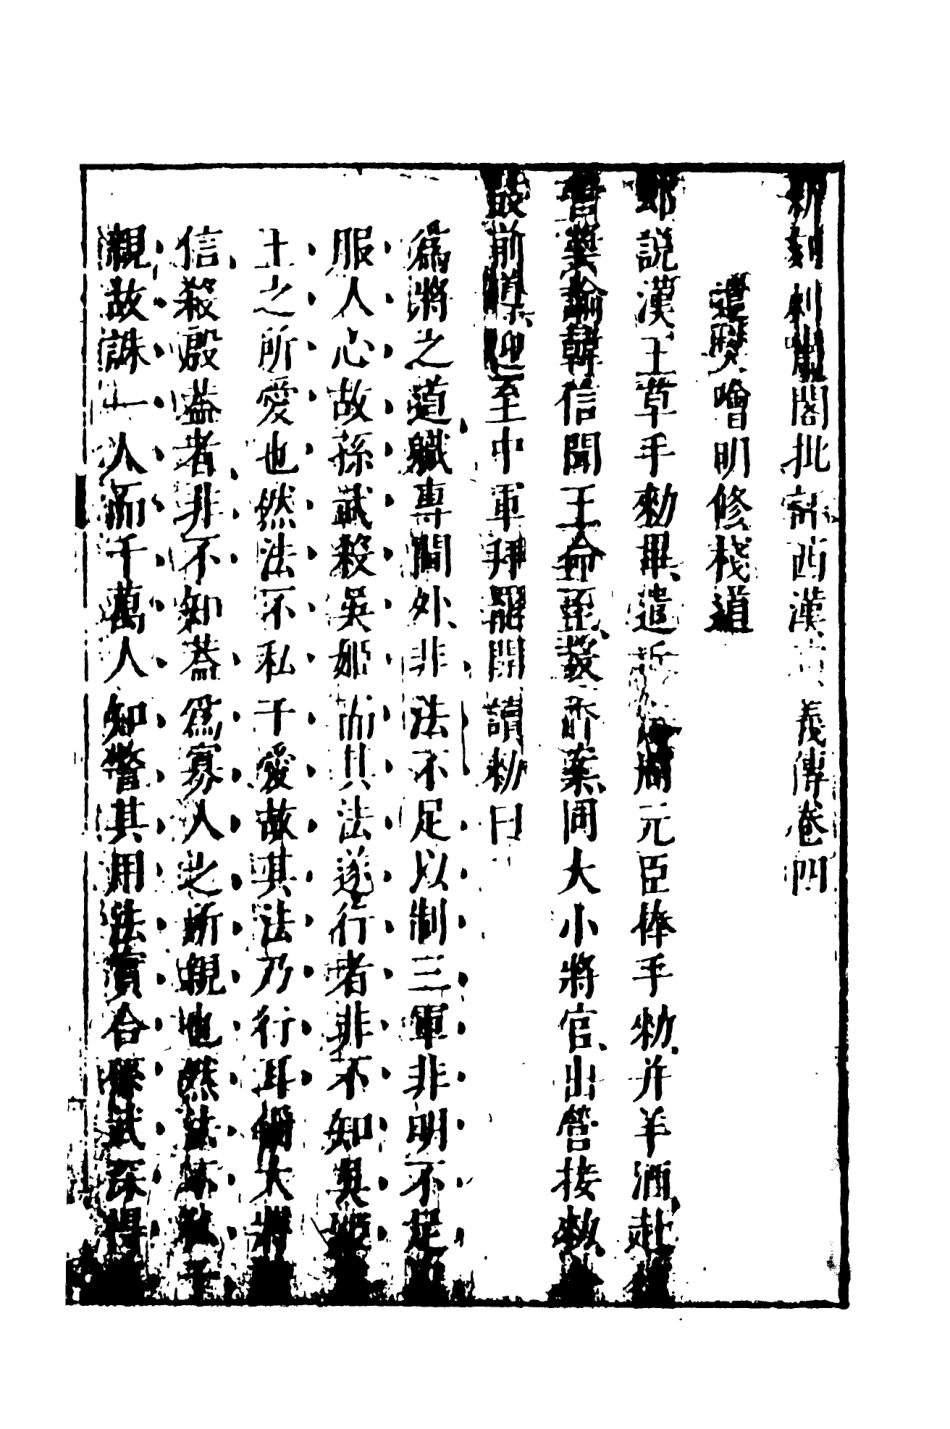 新刻劍嘯閣批評西漢演義傳卷四
遣樊噲明修棧道
却說漢王草手勅畢遣近侍周元臣捧手勅并羊酒赴
營獎諭韓信聞王命至教香案同大小將官出營接勅
鼓前導迎至中軍拜罷開讀勅曰
爲將之道職專閫外非法不足以制三軍非明不足以
服人心故孫武殺吳姬而其法遂行者非不知吳姬
王之所愛也然法不私于愛故其法乃行耳爾大將
信殺殷蓋者非不知蓋爲寡人之所親也然法不私于
親故誅一人而千萬人知警其用法實合孫武深得